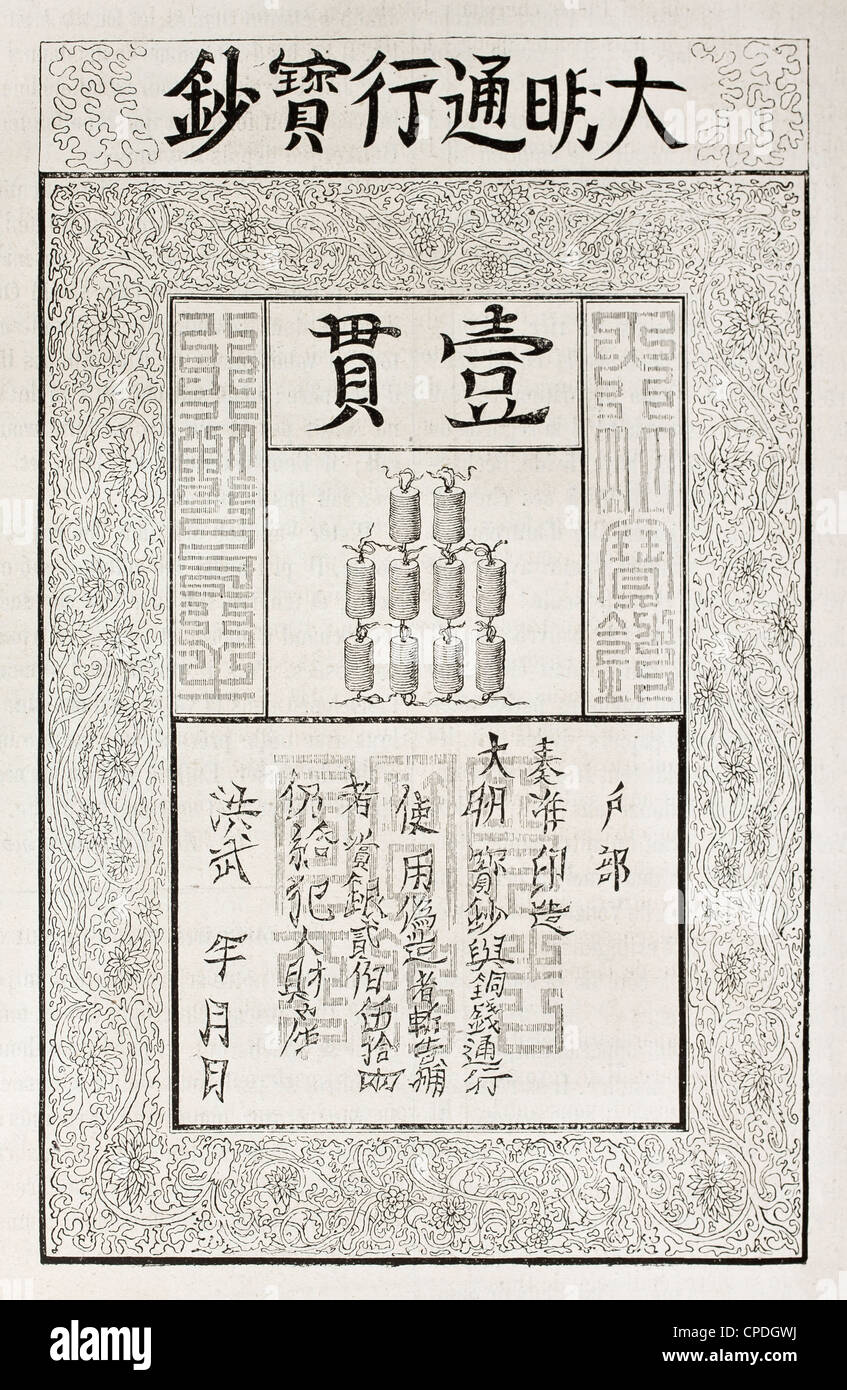 大明通行寶鈔
壹貫
大明寶鈔
戶部
奏准印造
大明寶鈔與銅錢通行
使用偽造者斬告捕
者賞銀貳佰伍拾兩
仍給犯人財產
洪武 年 月 日
alamy
Image ID: CPDGWJ
www.alamy.com